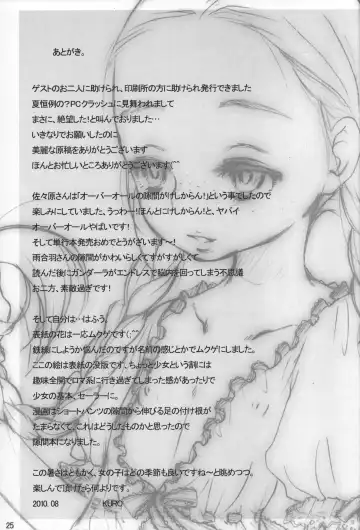 あとがき。
ゲストのお二人に助けられ、印刷所の方に助けられ発行できました
夏恒例の？PCクラッシュに見舞われまして
まさに、絶望した！と叫んでおりました…
いきなりでお願いしたのに
美麗な原稿をありがとうございます
ほんとお忙しいところありがとうございます(^^
佐々原さんは「オーバーオールの隙間がけしからん！」という事でしたので
楽しみにしていました。うっわー！ほんとにけしからん！と、ヤバイ
オーバーオールやばいです！
そして単行本発売おめでとうがざいます～！
雨合羽さんの隙間がかわいらしくてすがすがしくて
読んだ後にガンダーラがエンドレスで脳内を回ってしまう不思議
お二方、素敵過ぎです！
そして自分は…はふう。
表紙の花は一応ムクゲです(;^^)
鉄線にしようか悩んだのですが名前の感じとかでムクゲにしました。
ここの絵は表紙の没版です、ちょっと少女という割には
趣味全開でロマ系に行き過ぎてしまった感があったりで
少女の基本、セーラーに。
漫画はショートパンツの隙間から伸びる足の付け根が
たまらなくて、これはどうしたものかと思ったので
隙間本になりました。
この暑さはともかく、女の子はどの季節も良いですね～と眺めつつ。
楽しんで頂けたら何よりです。
2010.08 KURO
25